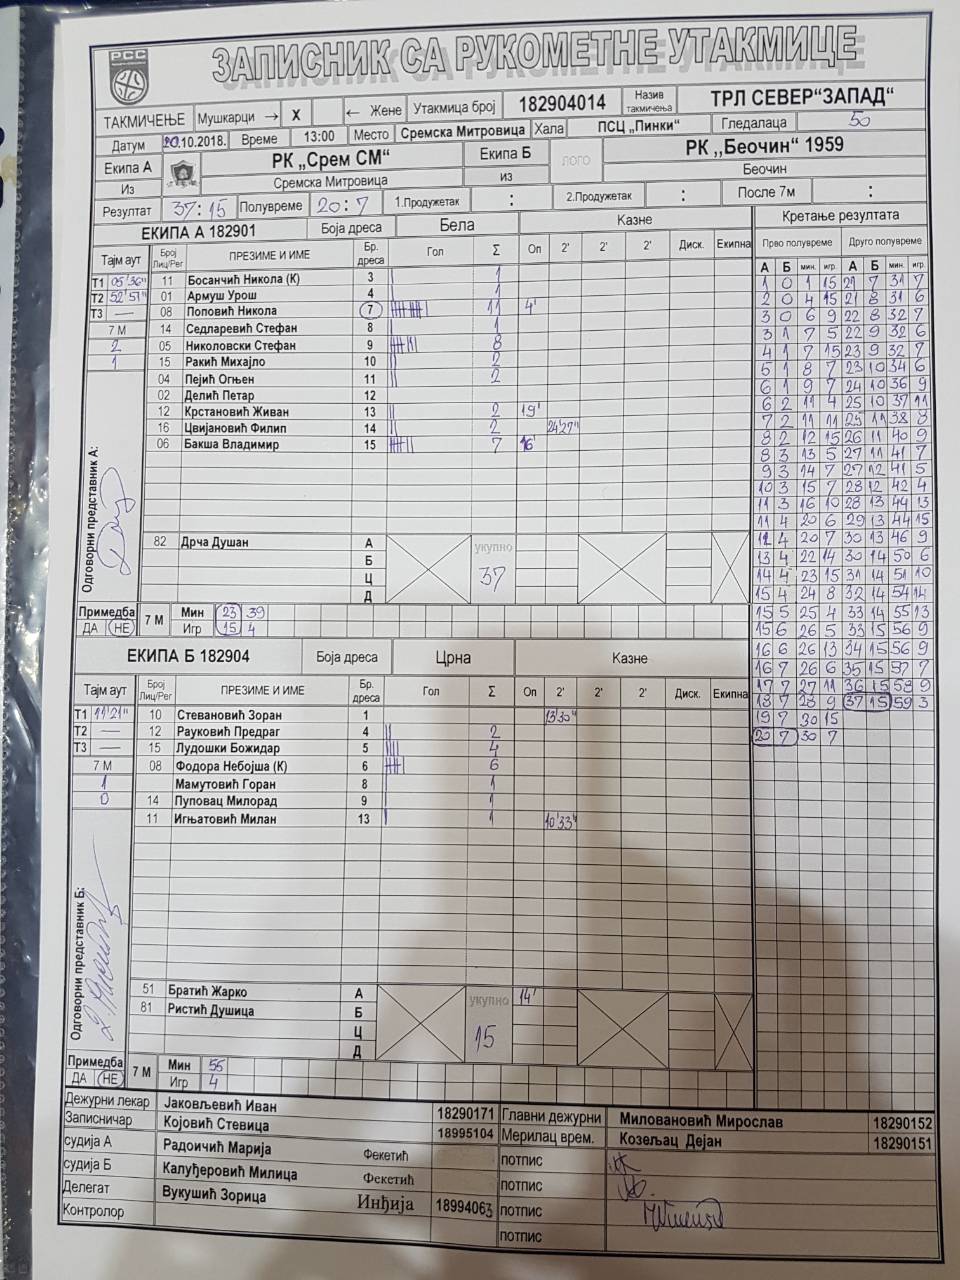 РСС
ЗАПИСНИК СА РУКОМЕТНЕ УТАКМИЦЕ
ТАКМИЧЕЊЕ Мушкарци → X ← Жене Утакмица број 182904014 Назив такмичења ТРЛ СЕВЕР“ЗАПАД“
Датум 20.10.2018. Време 13:00 Место Сремска Митровица Хала ПСЦ „Пинки“ Гледалаца 50
Екипа А РК „Срем СМ“ Екипа Б ЛОГО РК ,,Беочин“ 1959
Из Сремска Митровица из Беочин
Резултат 37:15 Полувреме 20:7 1.Продужетак : 2.Продужетак : После 7м :
ЕКИПА А 182901 Боја дреса Бела Казне Кретање резултата
Тајм аут Број Лиц/Рег ПРЕЗИМЕ И ИМЕ Бр. дреса Гол Σ Оп 2' 2' 2' Диск. Екипна Прво полувреме Друго полувреме
А Б мин. игр. А Б мин. игр.
Т1 05'36" 11 Босанчић Никола (К) 3 1
Т2 52'51" 01 Армуш Урош 4 1
Т3 — 08 Поповић Никола 7 11 4'
7 М 14 Седларевић Стефан 8 1
2 05 Николовски Стефан 9 8
1 15 Ракић Михајло 10 2
04 Пејић Огњен 11 2
02 Делић Петар 12
12 Крстановић Живан 13 2 19'
16 Цвијановић Филип 14 2 24'27"
06 Бакша Владимир 15 7 16'
Одговорни представник А:
82 Дрча Душан А укупно 37
Б
Ц
Д
Примедба ДА НЕ 7 М Мин 23 39
Игр 15 4
1 0 1 15 21 7 31 7
2 0 4 15 21 8 31 6
3 0 6 9 22 8 32 7
3 1 7 5 22 9 32 6
4 1 7 15 23 9 32 7
5 1 8 7 23 10 34 6
6 1 9 7 24 10 36 9
6 2 11 4 25 10 37 11
7 2 11 11 25 11 38 8
8 2 12 15 26 11 40 9
8 3 13 5 27 11 41 7
9 3 14 7 27 12 41 5
10 3 15 7 28 12 42 4
11 3 16 10 28 13 44 13
11 4 20 6 29 13 44 15
12 4 20 7 30 13 46 9
13 4 22 14 30 14 50 6
14 4 23 15 31 14 51 10
15 4 24 8 32 14 54 14
15 5 25 4 33 14 55 13
15 6 26 5 33 15 56 9
16 6 26 13 34 15 56 9
16 7 26 6 35 15 57 7
17 7 27 11 36 15 58 9
18 7 28 9 37 15 59 3
19 7 30 15
20 7 30 7
ЕКИПА Б 182904 Боја дреса Црна Казне
Тајм аут Број Лиц/Рег ПРЕЗИМЕ И ИМЕ Бр. дреса Гол Σ Оп 2' 2' 2' Диск. Екипна
Т1 11'21" 10 Стевановић Зоран 1 13'30"
Т2 — 12 Рауковић Предраг 4 2
Т3 — 15 Лудошки Божидар 5 4
7 М 08 Фодора Небојша (К) 6 6
1 Мамутовић Горан 8 1
0 14 Пуповац Милорад 9 1
11 Игњатовић Милан 13 1 10'33"
Одговорни представник Б:
51 Братић Жарко А укупно 15 14'
81 Ристић Душица Б
Ц
Д
Примедба ДА НЕ 7 М Мин 55
Игр 4
Дежурни лекар Јаковљевић Иван 18290171 Главни дежурни Миловановић Мирослав 18290152
Записничар Којовић Стевица 18995104 Мерилац врем. Козељац Дејан 18290151
судија А Радоичић Марија Фекетић потпис
судија Б Калуђеровић Милица Фекетић потпис
Делегат Вукушић Зорица Инђија 18994063 потпис
Контролор потпис